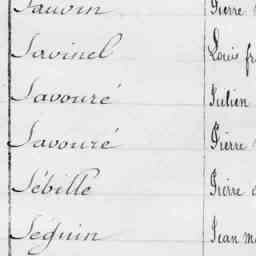 Sauvin Pierre
Savinel Louis fr
Savouré Julien
Savouré Pierre
Sébille Pierre
Séguin Jean m